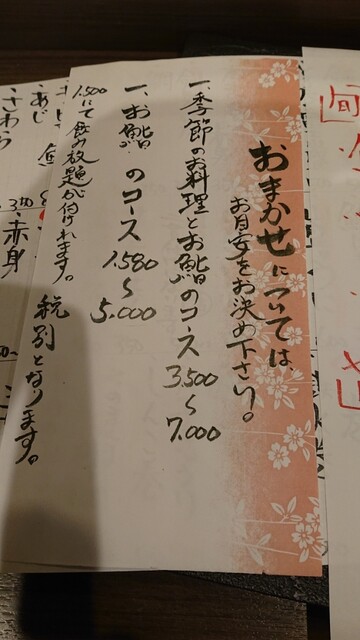 おまかせについては
お目安をお決め下さい。
一、季節のお料理とお鮨のコース
3,500
~
7,000
一、お鮨のコース
1,580
~
5,000
1,500にて飲み放題が付けれます。
税別となります。
赤身
あじ
さわら
旬